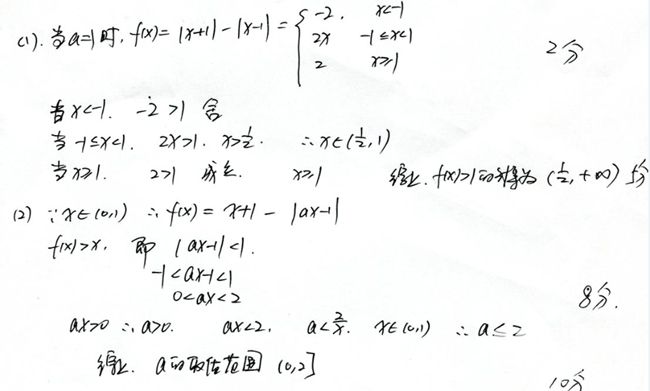 (1). 当a=1时, f(x)=|x+1|-|x-1|= { -2, x<-1
2x -1≤x<1 2分
2 x≥1
当x<-1. -2>1 舍
当-1≤x<1. 2x>1. x>1/2. ∴x∈(1/2,1)
当x≥1. 2>1 成立. x≥1 综上. f(x)>1的解集为(1/2,+∞) 5分
(2) ∵x∈(0,1) ∴f(x)=x+1-|ax-1|
f(x)>x. 即 |ax-1|<1.
-1<ax-1<1
0<ax<2 8分.
ax>0 ∴a>0. ax<2. a<2/x. x∈(0,1) ∴a≤2
综上. a的取值范围 (0,2]
10分